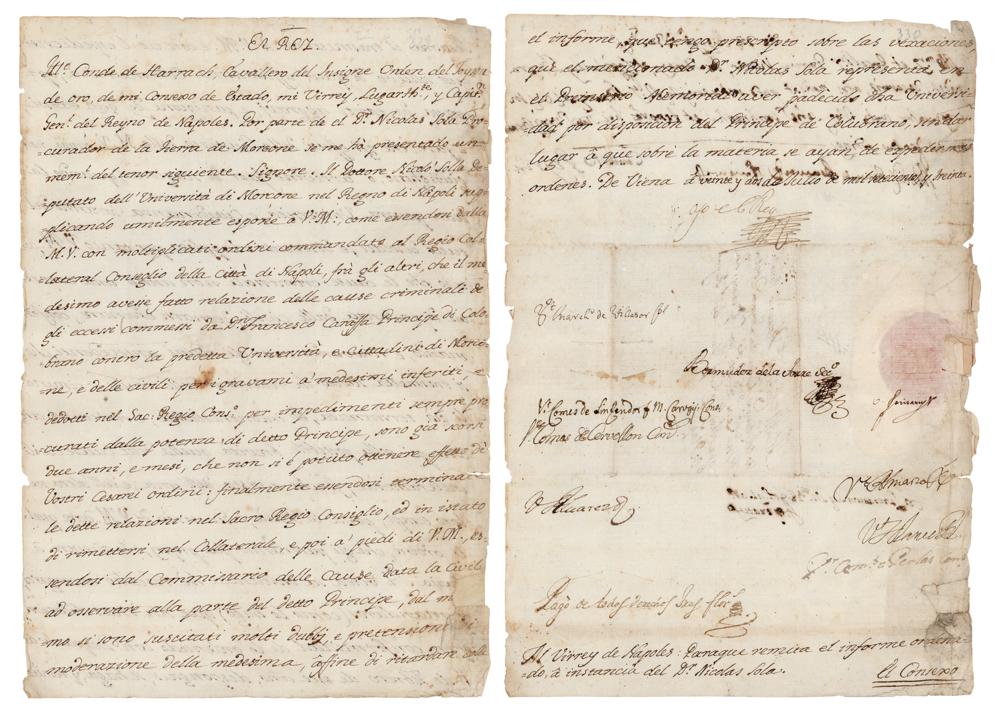 EL REY
Ill.e Conde de Harrach, Cavallero del Insigne Orden del Toyson
de oro, de mi Consejo de Estado, mi Virrey, Lugar th.te, y Capit.n
Gen.l del Reyno de Napoles. Por parte de el D.r Nicolas Sola Pro
=curador de la tierra de Morcone se me há presentado un
mem.l del tenor siguiente. Signore. Il Dottore Nicolò Solla De
putato dell'Università di Morcone nel Regno di Napoli sup
plicando umilmente espone à V.M. come essendosi dalla
M.V. con moltiplicati ordini commandato al Regio Col
lateral Conseglio della Città di Napoli, frà gli altri, che il me
desimo avesse fatto relazione delle cause criminali de
gli eccessi commessi da D.n Francesco Caraffa Principe di Colo
brano contro la predetta Università, e Cittadini di Morco
ne, e delle civili per i gravami a' medesimi inferiti e
dedotti nel Sac: Regio Cons.o per impedimenti sempre pro
curati dalla potenza di detto Principe, sono già scorsi
due anni, e mesi, che non si è potuto ottenere effetto di
Vostri Cesarei ordini: finalmente essendosi terminate
le dette relazioni nel Sacro Regio Consiglio, ed in istato
di rimettersi nel Collaterale, e poi a' piedi di V.M., es
sendosi dal Commissario delle Cause data la Civile
ad osservare alla parte del detto Principe, dal me
mo si sono suscitati molti dubbj, e pretensioni
moderazione della medesima, affine di ritardare
el informe, que tengo prescripto sobre las vexaciones
que el mencionado D.r Nicolas Sola representa en
el Memorial aver padecido esa Universi
dad por disposicion del Principe de Colubrano, sin dar
lugar à que sobre la materia se ayan de expedir nuevos
ordenes. De Viena à veinte y dos de Julio de mil setecientos y treinta.
Yo el Rey
V.t March.o de Villasor
Bermudez de la Torre Sec.o
V.t Comes de
V.t Comes de Cervellon
V.t Alvarez
V.t Almarz
Pagò de todos derechos tres flor.s
Al Virrey de Napoles: Paraque remita el informe ordena
=do, à instancia del D.r Nicolas Sola.
El Consejo